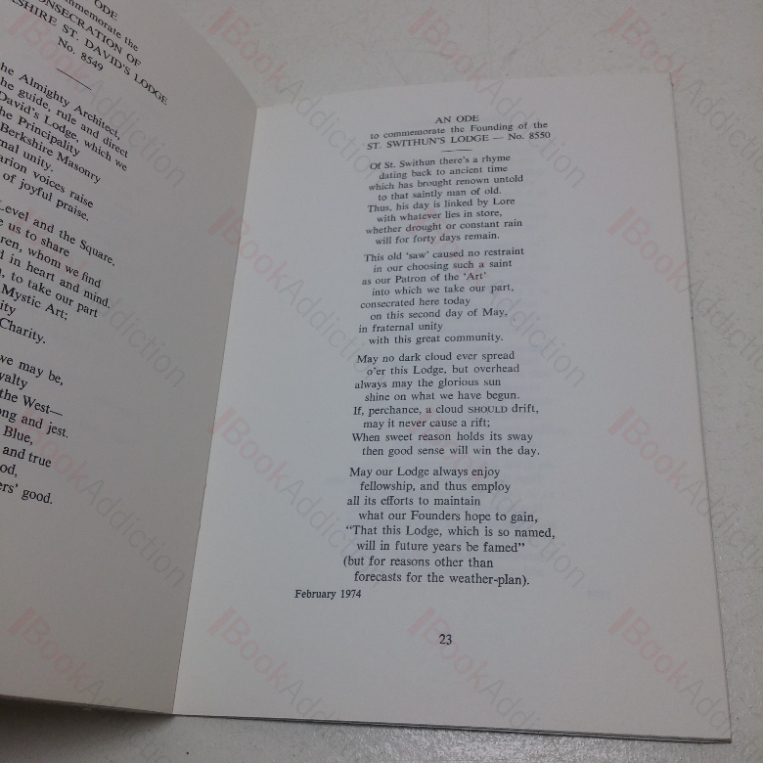 ODE
commemorate the
CONSECRATION OF
SHIRE ST. DAVID'S LODGE
No. 8549
the Almighty Architect,
the guide, rule and direct
David's Lodge, which we
the Principality
Berkshire Masonry
unity.
voices raise
of joyful praise.
Level and the Square,
us to share
whom we find
in heart and mind,
to take our part
Mystic Art;
Charity.
we may be,
the West—
and jest.
Blue,
and true
good.
AN ODE
to commemorate the Founding of the
ST. SWITHUN'S LODGE — No. 8550
Of St. Swithun there's a rhyme
dating back to ancient time
which has brought renown untold
to that saintly man of old.
Thus, his day is linked by Lore
with whatever lies in store,
whether drought or constant rain
will for forty days remain.
This old 'saw' caused no restraint
in our choosing such a saint
as our Patron of the 'Art'
into which we take our part,
consecrated here today
on this second day of May,
in fraternal unity
with this great community.
May no dark cloud ever spread
o'er this Lodge, but overhead
always may the glorious sun
shine on what we have begun.
If, perchance, a cloud SHOULD drift,
may it never cause a rift;
When sweet reason holds its sway
then good sense will win the day.
May our Lodge always enjoy
fellowship, and thus employ
all its efforts to maintain
what our Founders hope to gain,
"That this Lodge, which is so named,
will in future years be famed"
(but for reasons other than
forecasts for the weather-plan).
February 1974
23
BookAddiction